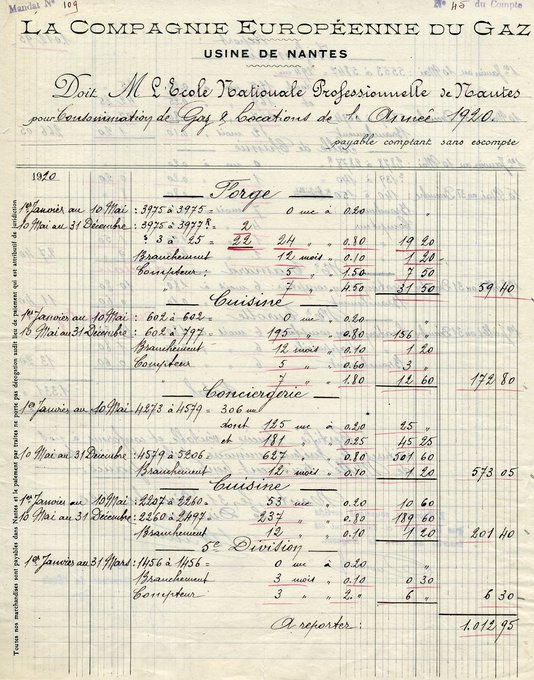 Mandat N° 109
N° 45 du Compte
LA COMPAGNIE EUROPÉENNE DU GAZ
USINE DE NANTES
Doit M L'Ecole Nationale Professionnelle de Nantes
pour Consommation de Gaz & Locations de l'Année 1920.
payable comptant sans escompte
1920
Forge
1er Janvier au 10 Mai : 3975 à 3975 = 0 mc à 0.20 "
10 Mai au 31 Décembre : 3975 à 3977 = 2
" 3 à 25 = 22 24 " " 0.80 19 20
Branchement 12 mois " 0.10 1 20
Compteur : 5 " " 1.50 7 50
" 7 " " 4.50 31 50 59 40
Cuisine
1er Janvier au 10 Mai : 602 à 602 = 0 mc à 0.20 "
10 Mai au 31 Décembre : 602 à 797 = 195 " " 0.80 156 "
Branchement 12 mois " 0.10 1 20
Compteur 5 " " 0.60 3 "
" 7 " " 1.80 12 60 172 80
Conciergerie
1er Janvier au 10 Mai 4273 à 4579 = 306 mc
dont 125 mc à 0.20 25 "
et 181 " " 0.25 45 25
10 Mai au 31 Décembre : 4579 à 5206 627 " " 0.80 501 60
Branchement 12 mois " 0.10 1 20 573 05
Cuisine
1er Janvier au 10 Mai : 2207 à 2260 = 53 mc " 0.20 10 60
10 Mai au 31 Décembre : 2260 à 2497 = 237 " " 0.80 189 60
Branchement 12 " " 0.10 1 20 201 40
5e Division
1er Janvier au 31 Mars : 1456 à 1456 = 0 mc à 0.20 "
Branchement 3 mois " 0.10 0 30
Compteur 3 " " 2. " 6 " 6 30
A reporter : 1.012 95
Toutes nos marchandises sont payables dans Nantes et le paiement par traites ne porte pas dérogation audit lieu de paiement qui est attributif de juridiction